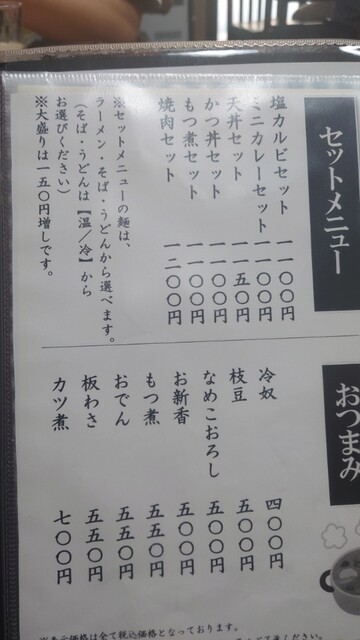 セットメニュー
塩カルビセット 一一〇〇円
ミニカレーセット 一一〇〇円
天丼セット 一一五〇円
かつ丼セット 一一〇〇円
もつ煮セット 一一〇〇円
焼肉セット 一二〇〇円
※セットメニューの麺は、
ラーメン・そば・うどんから選べます。
(そば・うどんは【温／冷】から
お選びください)
※大盛りは一五〇円増しです。
おつまみ
冷奴 四〇〇円
枝豆 五〇〇円
なめこおろし 五〇〇円
お新香 五〇〇円
もつ煮 五五〇円
おでん 五五〇円
板わさ 五五〇円
カツ煮 七〇〇円
※表示価格は全て税込価格となっております。